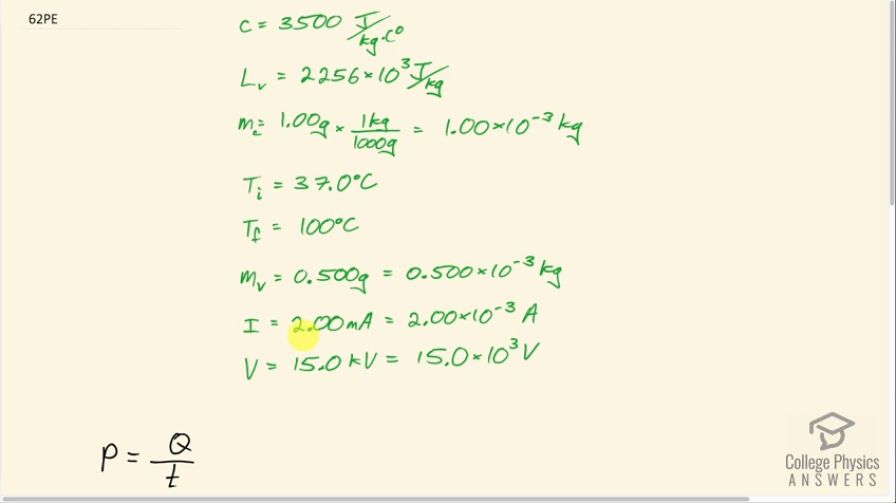 62PE
c = 3500 J/kg·C°
Lv = 2256×10³ J/kg
mc = 1.00g × 1kg/1000g = 1.00×10⁻³ kg
Ti = 37.0°C
Tf = 100°C
mv = 0.500g = 0.500×10⁻³ kg
I = 2.00mA = 2.00×10⁻³ A
V = 15.0 kV = 15.0×10³ V
P = Q/t
College Physics
ANSWERS